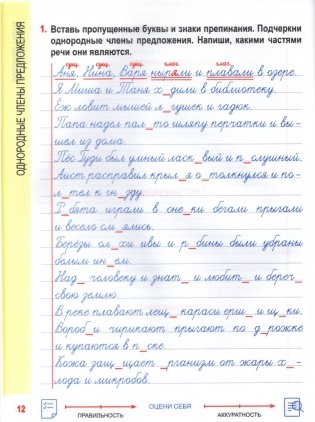 ОДНОРОДНЫЕ ЧЛЕНЫ ПРЕДЛОЖЕНИЯ
1. Вставь пропущенные буквы и знаки препинания. Подчеркни
однородные члены предложения. Напиши, какими частями
речи они являются.
сущ. сущ. сущ. глаг. глаг.
Аня, Нина, Варя ныряли и плавали в озере.
Я Миша и Таня х_дили в библиотеку.
Ёж ловит мышей л_гушек и гадюк.
Папа надел пал_то шляпу перчатки и вы-
шел из дома.
Пёс Гуди был умный ласк_вый и п_слушный.
Аист расправил крыл_я о_толкнулся и по-
л_тел к гн_зду.
Р_бята играли в сне_ки бегали прыгали
и весело см_ялись.
Берёзы ол_хи ивы и р_бины были убраны
белым ин_ем.
Над_ человеку и знат_ и любит_ и береч_
свою землю.
В реке плавают лещ_ караси ерш_ и щ_ки.
Вороб_и чирикают прыгают по д_рожке
и купаются в п_ске.
Кожа защ_щает _рганизм от жары х_-
лода и микробов.
12
ПРАВИЛЬНОСТЬ
ОЦЕНИ СЕБЯ
АККУРАТНОСТЬ